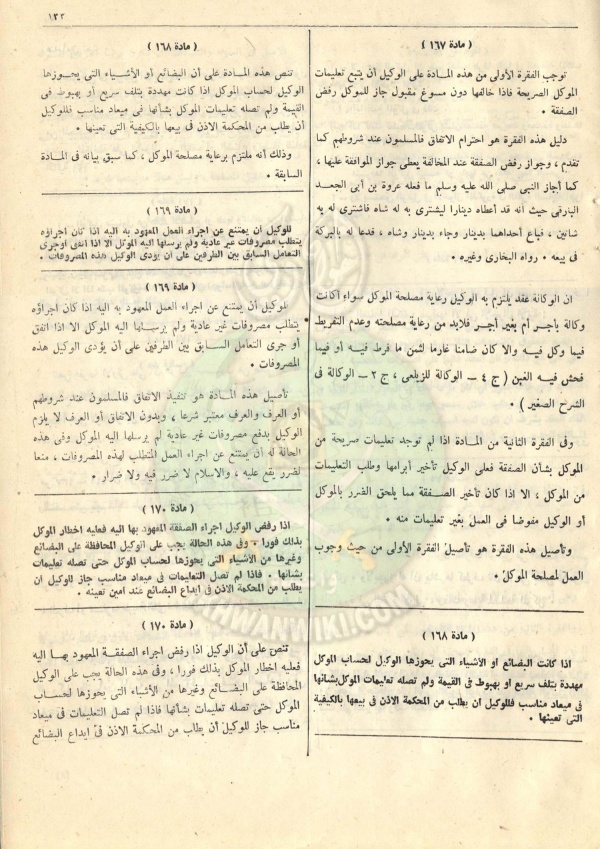 ١٣٣
( مادة ١٦٧ )
توجب الفقرة الأولى من هذه المادة على الوكيل أن يتبع تعليمات
الموكل الصريحة فاذا خالفها دون مسوغ مقبول جاز للموكل رفض
الصفقة •
دليل هذه الفقرة هو احترام الاتفاق فالمسلمون عند شروطهم كما
تقدم ، وجواز رفض الصفقة عند المخالفة يعطى جواز الموافقة عليها ،
كما أجاز النبى صلى الله عليه وسلم ما فعله عروة بن أبى الجعد
البارقى حيث انه قد أعطاه دينارا ليشترى به له شاه فاشترى له به
شاتين ، فباع أحداهما بدينار وجاء بدينار وشاه ، فدعا له بالبركة
فى بيعه • رواه البخارى وغيره •
ان الوكالة عقد يلتزم به الوكيل رعاية مصلحة الموكل سواء أكانت
وكالة بأجر أم بغير أجر فلابد من رعاية مصلحته وعدم التفريط
فيما وكل فيه والا كان ضامنا غارما لثمن ما فرط فيه أو فيما
فحش فيه الغبن ( ج ٤ – الوكالة للزيلعى ، ج ٢ – الوكالة فى
الشرح الصغير ) •
وفى الفقرة الثانية من المادة اذا لم توجد تعليمات صريحة من
الموكل بشأن الصفقة فعلى الوكيل تأخير أبرامها وطلب التعليمات
من الموكل ، الا اذا كان تأخير الصفقة مما يلحق الضرر بالموكل
أو الوكيل مفوضا فى العمل بغير تعليمات منه •
وتأصيل هذه الفقرة هو تأصيل الفقرة الأولى من حيث وجوب
العمل لمصلحة الموكل •
( مادة ١٦٨ )
اذا كانت البضائع أو الأشياء التى يحوزها الوكيل لحساب الموكل
مهددة بتلف سريع أو بهبوط فى القيمة ولم تصله تعليمات الموكل بشأنها
فى ميعاد مناسب فللوكيل أن يطلب من المحكمة الاذن فى بيعها بالكيفية
التى تعينها •
( مادة ١٦٨ )
تنص هذه المادة على أن البضائع أو الأشياء التى يحوزها
الوكيل لحساب الموكل اذا كانت مهددة بتلف سريع أو بهبوط فى
القيمة ولم تصله تعليمات الموكل بشأنها فى ميعاد مناسب فللوكيل
أن يطلب من المحكمة الاذن فى بيعها بالكيفية التى تعينها •
وذلك أنه ملتزم برعاية مصلحة الموكل ، كما سبق بيانه فى المادة
السابقة •
( مادة ١٦٩ )
للوكيل أن يمتنع عن اجراء العمل المعهود به اليه اذا كان اجراؤه
يتطلب مصروفات غير عادية ولم يرسلها اليه الموكل الا اذا اتفق أو جرى
التعامل السابق بين الطرفين على أن يؤدى الوكيل هذه المصروفات •
( مادة ١٦٩ )
للوكيل أن يمتنع عن اجراء العمل المعهود به اليه اذا كان اجراؤه
يتطلب مصروفات غير عادية ولم يرسلها اليه الموكل الا اذا اتفق
أو جرى التعامل السابق بين الطرفين على أن يؤدى الوكيل هذه
المصروفات •
تأصيل هذه المادة هو تنفيذ الاتفاق فالمسلمون عند شروطهم
أو العرف والعرف معتبر شرعا ، وبدون الاتفاق أو العرف لا يلزم
الوكيل بدفع مصروفات غير عادية لم يرسلها اليه الموكل وفى هذه
الحالة له أن يمتنع عن اجراء العمل المتطلب لهذه المصروفات ، منعا
لضرر يقع عليه ، والاسلام لا ضرر فيه ولا ضرار •
( مادة ١٧٠ )
اذا رفض الوكيل اجراء الصفقة المعهود بها اليه فعليه اخطار الموكل
بذلك فورا • وفى هذه الحالة يجب على الوكيل المحافظة على البضائع
وغيرها من الأشياء التى يحوزها لحساب الموكل حتى تصله تعليمات
بشأنها • فاذا لم تصل التعليمات فى ميعاد مناسب جاز للوكيل أن
يطلب من المحكمة الاذن فى ايداع البضائع عند أمين تعينه •
( مادة ١٧٠ )
تنص على أن الوكيل اذا رفض اجراء الصفقة المعهود بها اليه
فعليه اخطار الموكل بذلك فورا ، وفى هذه الحالة يجب على الوكيل
المحافظة على البضائع وغيرها من الأشياء التى يحوزها لحساب
الموكل حتى تصله تعليمات بشأنها فاذا لم تصل التعليمات فى ميعاد
مناسب جاز للوكيل أن يطلب من المحكمة الاذن فى ايداع البضائع
IKHWANWIKI.COM